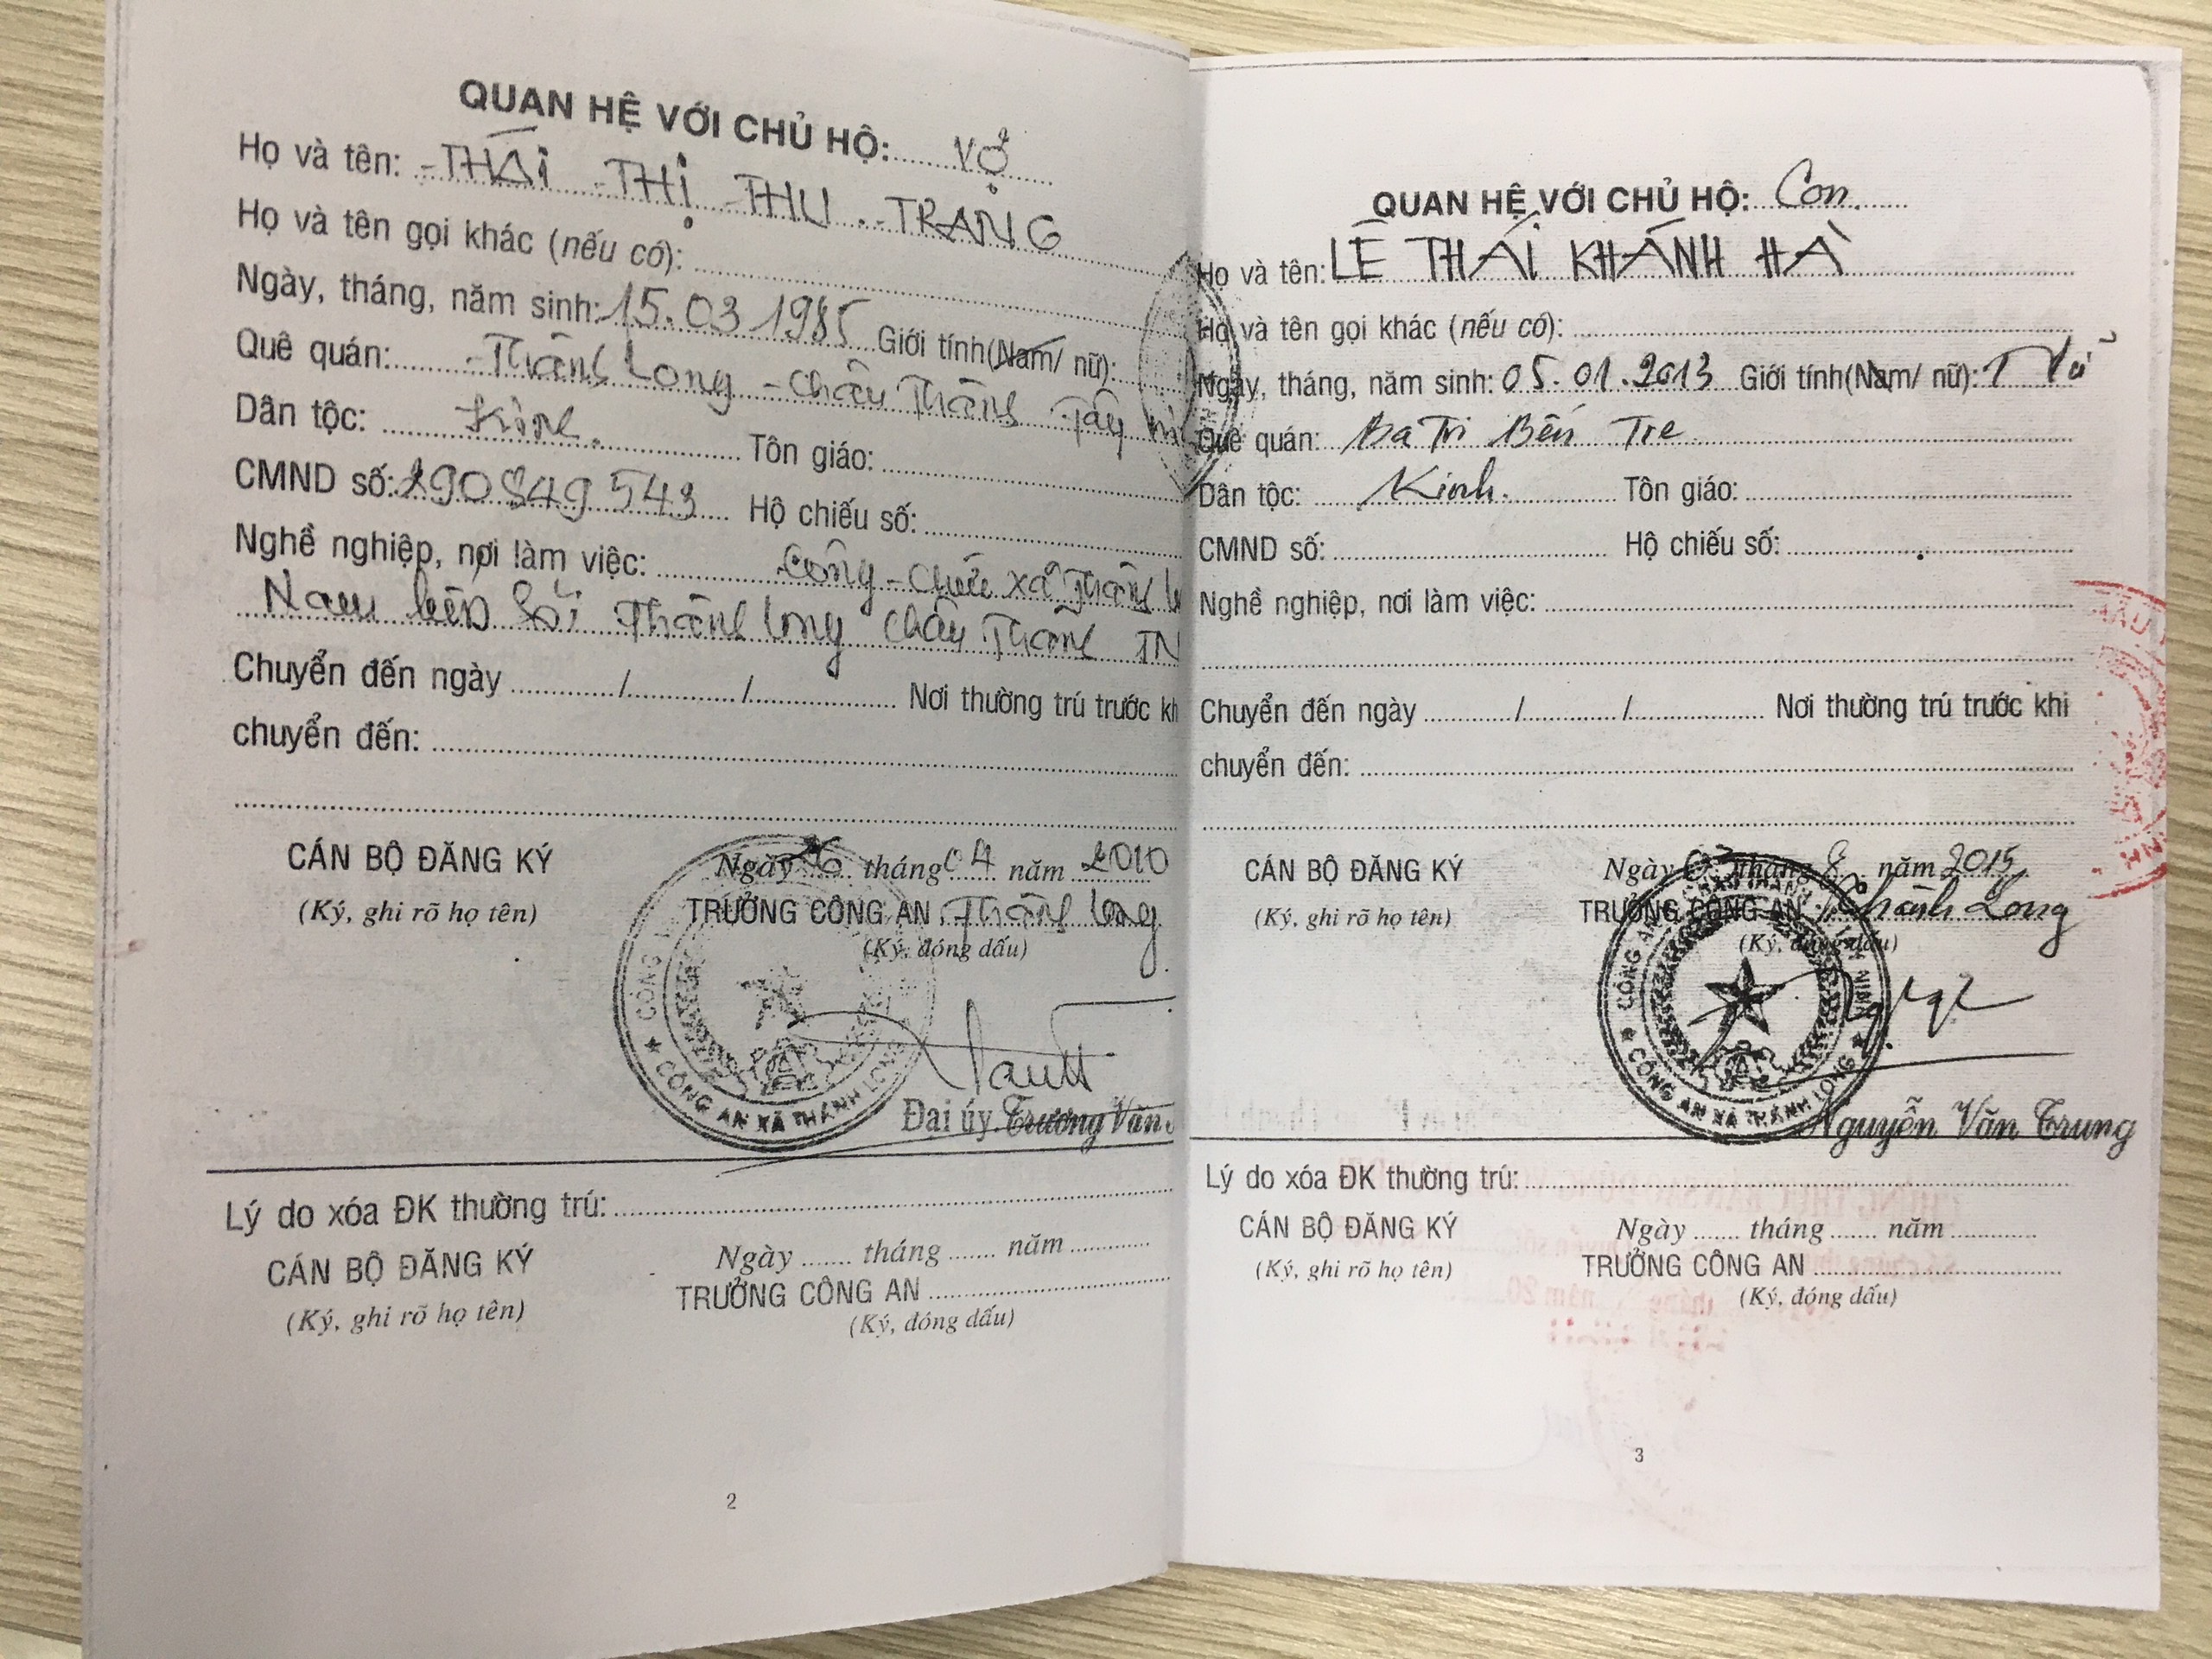 QUAN HỆ VỚI CHỦ HỘ: VỢ
Họ và tên: THÁI THỊ THU TRANG
Họ và tên gọi khác (nếu có):
Ngày, tháng, năm sinh: 15.03.1985 Giới tính (Nam/ nữ):
Quê quán: Thành Long - Châu Thành Tây
Dân tộc: Kinh. Tôn giáo:
CMND số: 290849543 Hộ chiếu số:
Nghề nghiệp, nơi làm việc: Công chức xã Thành
Nam bến Sỏi Thành Long Châu Thành TN
Chuyển đến ngày / / Nơi thường trú trước kh
chuyển đến:
CÁN BỘ ĐĂNG KÝ
(Ký, ghi rõ họ tên)
Ngày 26 tháng 04 năm 2010
TRƯỞNG CÔNG AN Thành Long
(Ký, đóng dấu)
CÔNG AN XÃ THÀNH LONG
Đại úy. Trương Văn
Lý do xóa ĐK thường trú:
CÁN BỘ ĐĂNG KÝ
(Ký, ghi rõ họ tên)
Ngày ....... tháng ....... năm
TRƯỞNG CÔNG AN
(Ký, đóng dấu)
2
QUAN HỆ VỚI CHỦ HỘ: Con.
Họ và tên: LÊ THÁI KHÁNH HÀ
Họ và tên gọi khác (nếu có):
Ngày, tháng, năm sinh: 05.01.2013 Giới tính (Nam/ nữ): Nữ
Quê quán: Ba Tri Bến Tre
Dân tộc: Kinh. Tôn giáo:
CMND số: Hộ chiếu số:
Nghề nghiệp, nơi làm việc:
Chuyển đến ngày / / Nơi thường trú trước khi
chuyển đến:
CÁN BỘ ĐĂNG KÝ
(Ký, ghi rõ họ tên)
Ngày 03 tháng 8 năm 2015
TRƯỞNG CÔNG AN Thành Long
(Ký, đóng dấu)
CÔNG AN XÃ THÀNH LONG
Nguyễn Văn Trung
Lý do xóa ĐK thường trú:
CÁN BỘ ĐĂNG KÝ
(Ký, ghi rõ họ tên)
Ngày ....... tháng ....... năm
TRƯỞNG CÔNG AN
(Ký, đóng dấu)
3